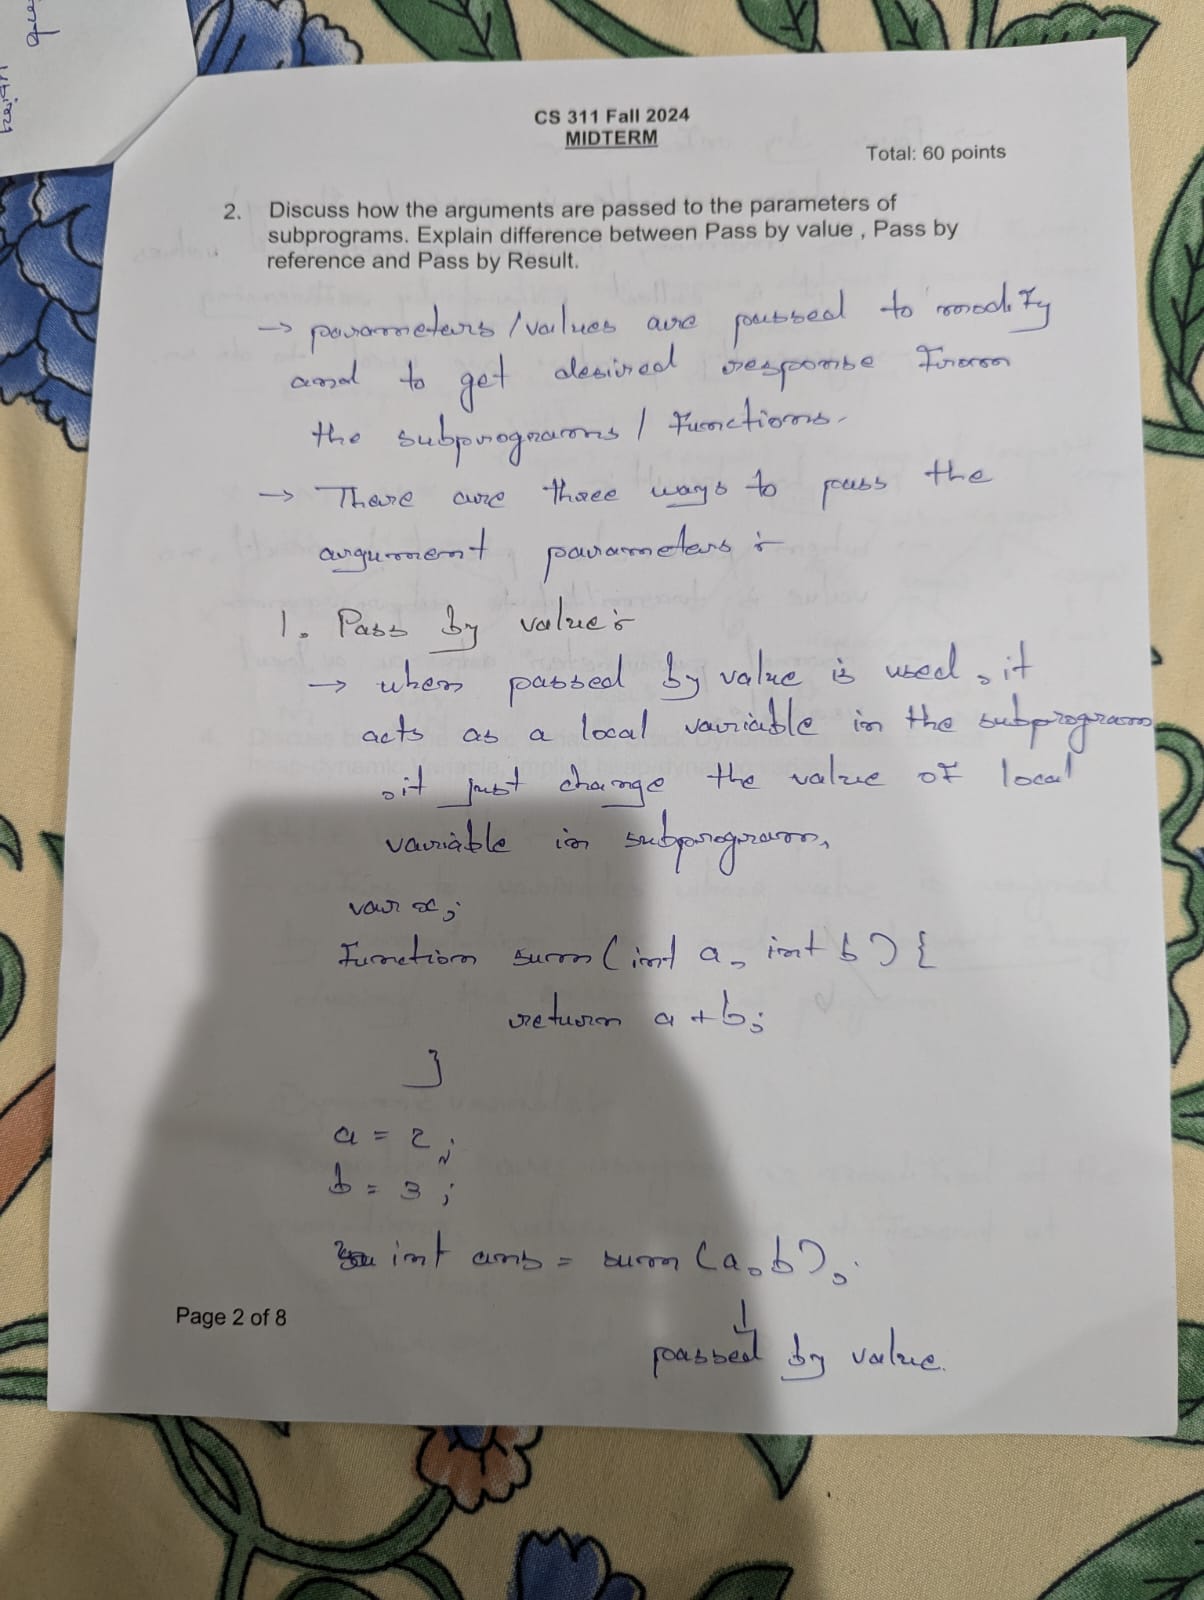 CS 311 Fall 2024
MIDTERM
Total: 60 points
2. Discuss how the arguments are passed to the parameters of
subprograms. Explain difference between Pass by value , Pass by
reference and Pass by Result.
→ parameters / values are passed to modify
and to get desired response from
the subprograms / functions.
→ There are three ways to pass the
argument parameters :-
1. Pass by value :-
→ when passed by value is used, it
acts as a local variable in the subprogram
, it just change the value of local
variable in subprogram,
var x;
Function sum (int a, int b) {
return a + b;
}
a = 2;
b = 3;
int ans = sum (a, b);
↓
passed by value.
Page 2 of 8